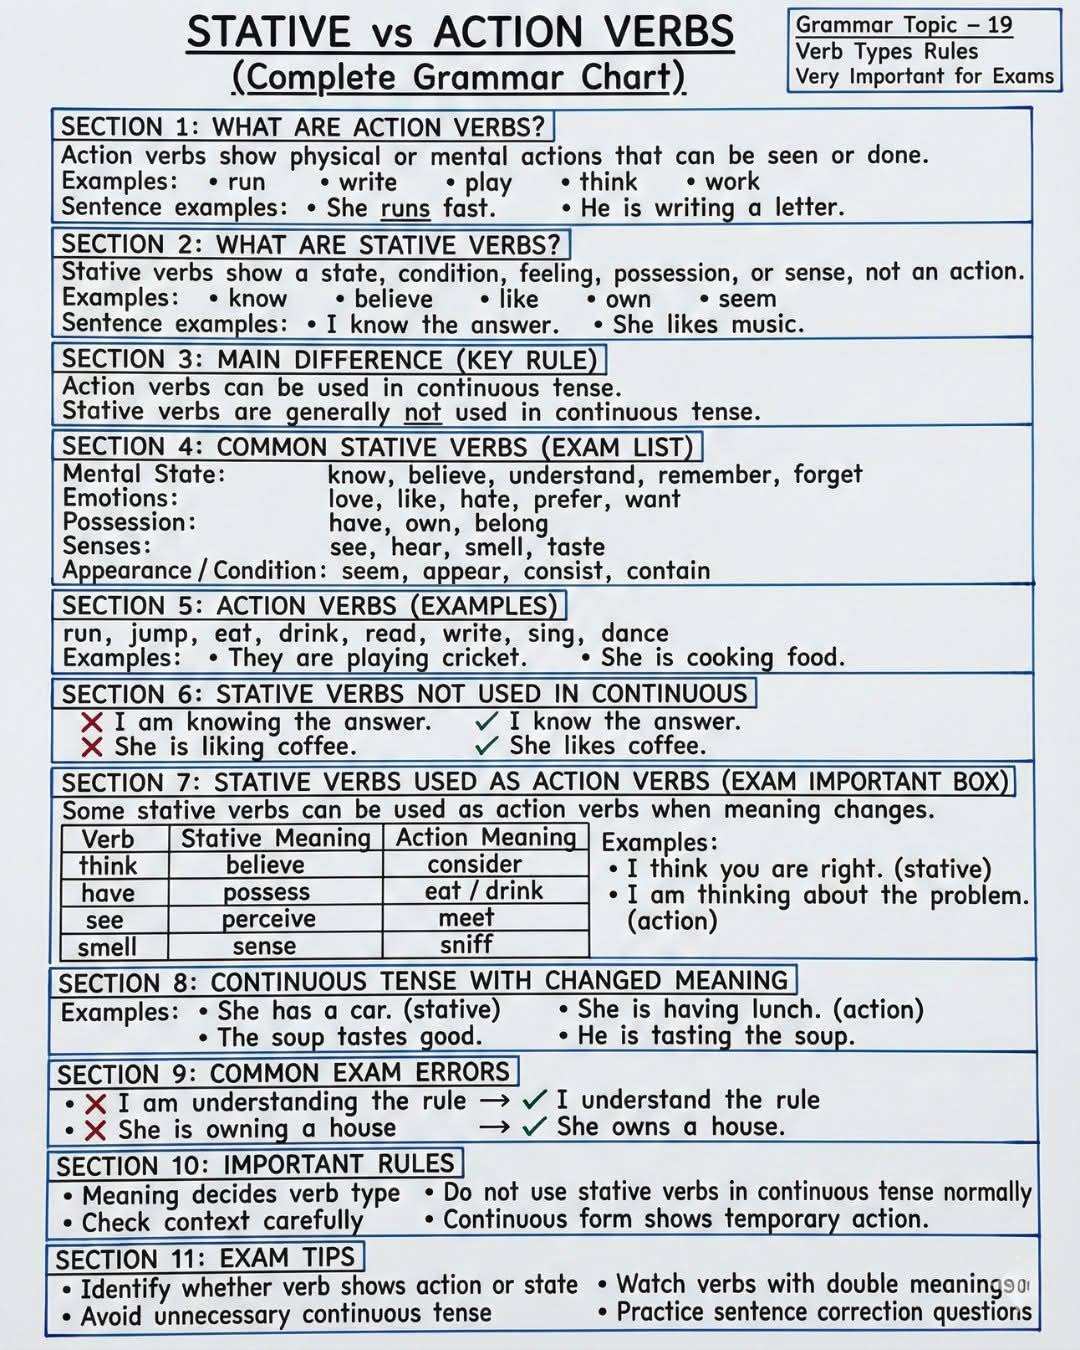 STATIVE vs ACTION VERBS
(Complete Grammar Chart)
Grammar Topic – 19
Verb Types Rules
Very Important for Exams
SECTION 1: WHAT ARE ACTION VERBS?
Action verbs show physical or mental actions that can be seen or done.
Examples: • run • write • play • think • work
Sentence examples: • She runs fast. • He is writing a letter.
SECTION 2: WHAT ARE STATIVE VERBS?
Stative verbs show a state, condition, feeling, possession, or sense, not an action.
Examples: • know • believe • like • own • seem
Sentence examples: • I know the answer. • She likes music.
SECTION 3: MAIN DIFFERENCE (KEY RULE)
Action verbs can be used in continuous tense.
Stative verbs are generally not used in continuous tense.
SECTION 4: COMMON STATIVE VERBS (EXAM LIST)
Mental State: know, believe, understand, remember, forget
Emotions: love, like, hate, prefer, want
Possession: have, own, belong
Senses: see, hear, smell, taste
Appearance / Condition: seem, appear, consist, contain
SECTION 5: ACTION VERBS (EXAMPLES)
run, jump, eat, drink, read, write, sing, dance
Examples: • They are playing cricket. • She is cooking food.
SECTION 6: STATIVE VERBS NOT USED IN CONTINUOUS
✗ I am knowing the answer. ✓ I know the answer.
✗ She is liking coffee. ✓ She likes coffee.
SECTION 7: STATIVE VERBS USED AS ACTION VERBS (EXAM IMPORTANT BOX)
Some stative verbs can be used as action verbs when meaning changes.
Verb Stative Meaning Action Meaning
think believe consider
have possess eat / drink
see perceive meet
smell sense sniff
Examples:
• I think you are right. (stative)
• I am thinking about the problem.
(action)
SECTION 8: CONTINUOUS TENSE WITH CHANGED MEANING
Examples: • She has a car. (stative) • She is having lunch. (action)
• The soup tastes good. • He is tasting the soup.
SECTION 9: COMMON EXAM ERRORS
• ✗ I am understanding the rule → ✓ I understand the rule
• ✗ She is owning a house → ✓ She owns a house.
SECTION 10: IMPORTANT RULES
• Meaning decides verb type • Do not use stative verbs in continuous tense normally
• Check context carefully • Continuous form shows temporary action.
SECTION 11: EXAM TIPS
• Identify whether verb shows action or state • Watch verbs with double meanings
• Avoid unnecessary continuous tense • Practice sentence correction questions